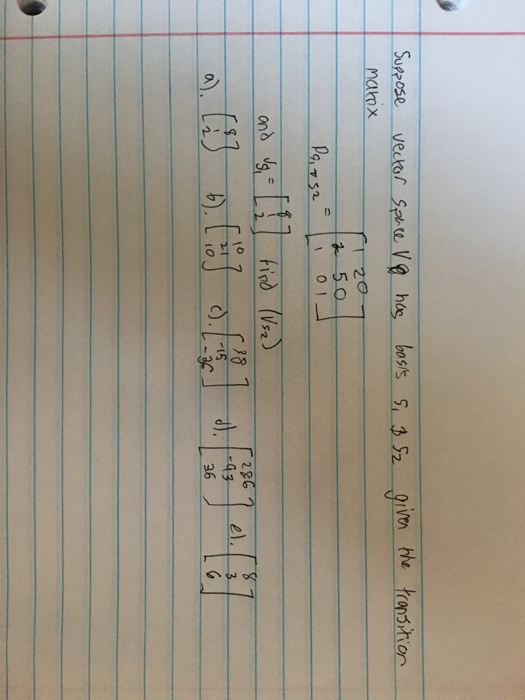 Suppose vector space V has basis S1 & S2 given the transition
matrix
PS1→S2 = [1 2 0
2 5 0
1 0 1]
and VS1 = [8
1
2] find (VS2)
a). [8
1
2] b). [10
21
10] c). [38
-15
-36] d). [286
-93
36] e). [8
3
6]